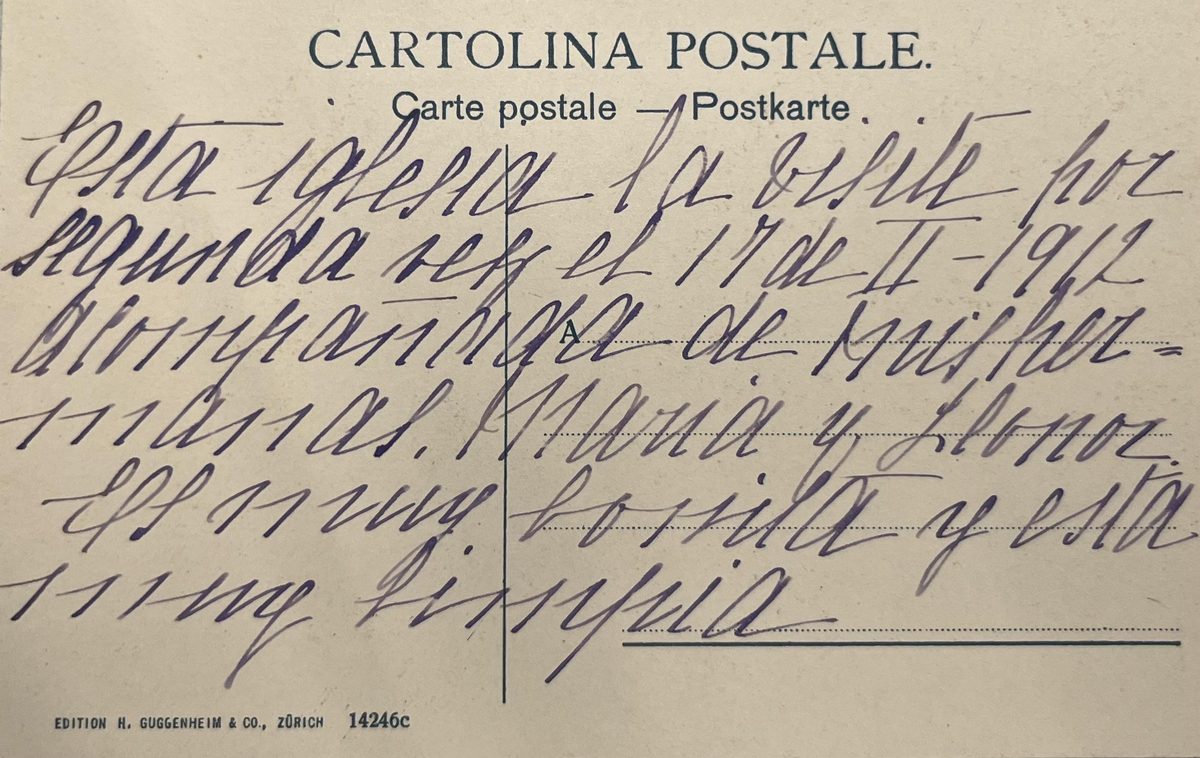 CARTOLINA POSTALE.
Carte postale — Postkarte
Esta iglesia la visité por
segunda vez el 17 de II-1912
acompañada de mis her=
manas. Maria y Leonor.
Es muy bonita y esta
muy limpia
A
EDITION H. GUGGENHEIM & CO., ZÜRICH 14246c